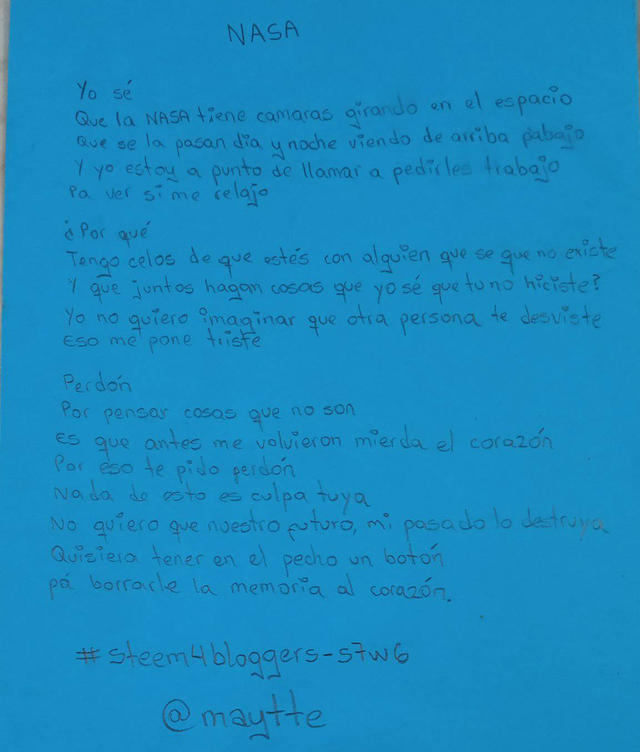 NASA
Yo sé
Que la NASA tiene camaras girando en el espacio
Que se la pasan dia y noche viendo de arriba pabajo
Y yo estoy a punto de llamar a pedirles trabajo
Pa ver si me relajo
¿Por qué
Tengo celos de que estés con alguien que se que no existe
Y que juntos hagan cosas que yo sé que tu no hiciste?
Yo no quiero imaginar que otra persona te desviste
Eso me pone triste
Perdón
Por pensar cosas que no son
es que antes me volvieron mierda el corazón
Por eso te pido perdón
Nada de esto es culpa tuya
No quiero que nuestro futuro, mi pasado lo destruya
Quisiera tener en el pecho un botón
pá borrarle la memoria al corazón.
#steem4bloggers-s7w6
@maytte